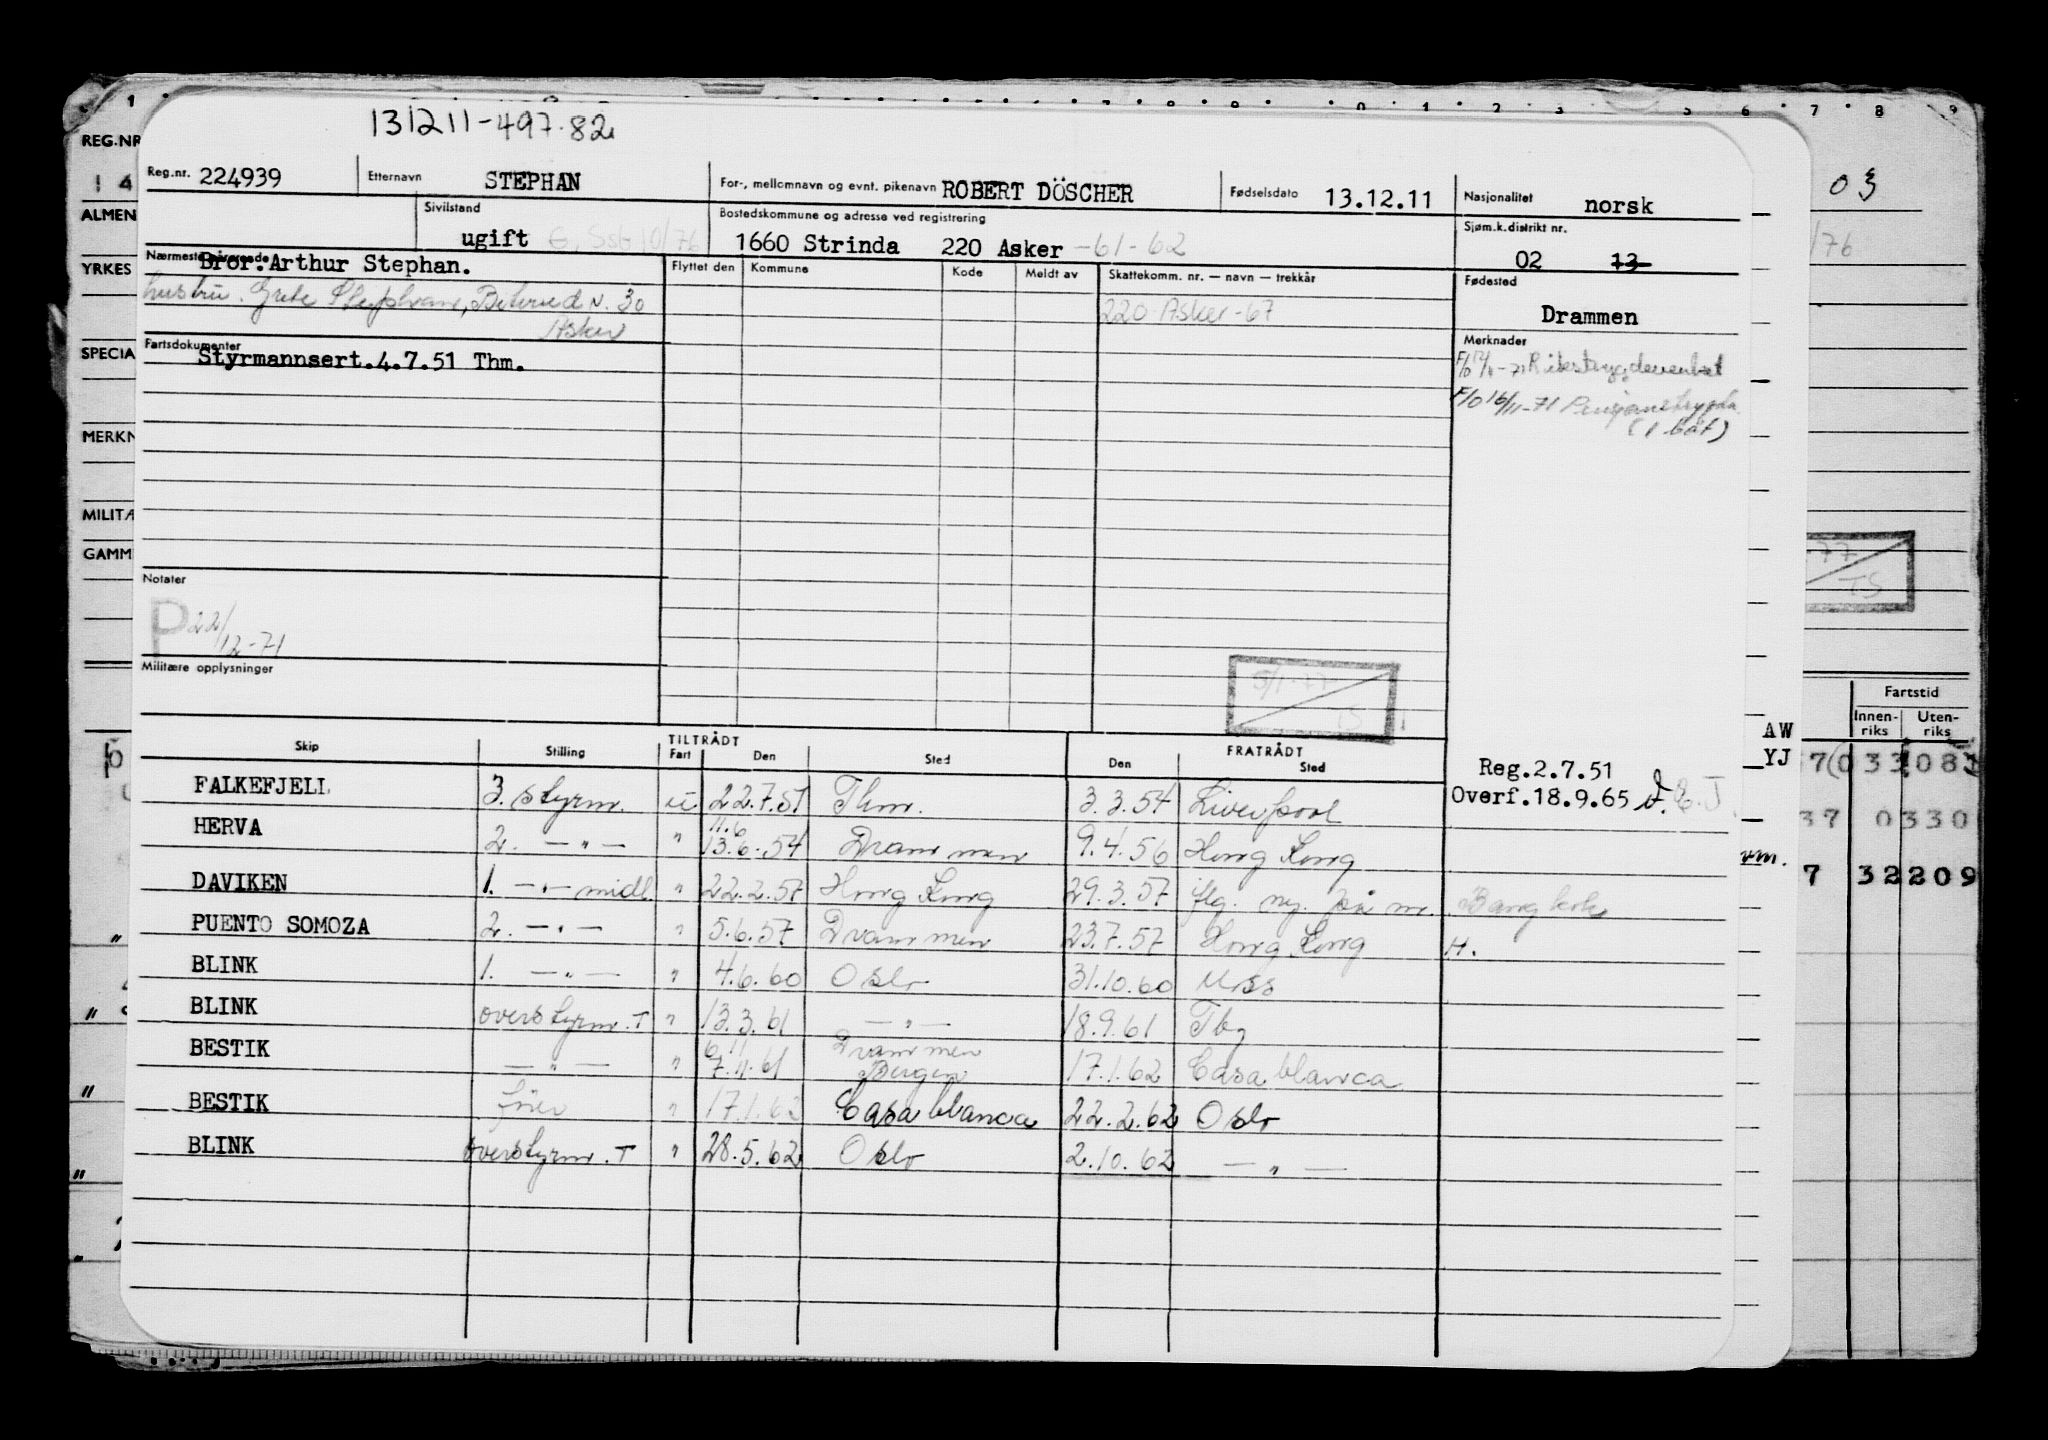 131211-497.82
Reg.nr. 224939 Etternavn STEPHAN For-, mellomnavn og evnt. pikenavn ROBERT DÖSCHER Fødselsdato 13.12.11 Nasjonalitet norsk
Sivilstand ugift Bostedskommune og adresse ved registrering 1660 Strinda 220 Asker -61-62 Sjøm.k.distrikt nr. 02 13
Nærmeste pårørende Bror: Arthur Stephan.
hustru. Grete Stephan, N. 30
Asker
Flyttet den Kommune Kode Meldt av Skattekomm. nr. — navn — trekkår
220 Asker -67
Fødested Drammen
Fartsdokumenter Styrmannsert.4.7.51 Thm.
Merknader
-71 Rikstrygdeverket
F/O 16/11-71 Pensjonstrygda
(1 båt)
Notater
P 22/12-71
Militære opplysninger
5/1-77
TS
Skip Stilling TILTRÅDT Fart Den Sted FRATRÅDT Den Sted
Reg.2.7.51
Overf.18.9.65
FALKEFJELL 3. styrm. u 22.7.51 Thm. 3.3.54 Liverpool
HERVA 2. — " — " 11.6 13.6.54 Drammen 9.4.56 Hong Kong
DAVIKEN 1. — " — midl. " 22.2.57 Hong Kong 29.3.57 flg. ny. på m. Bangkok
PUENTO SOMOZA 2. — " — " 5.6.57 Drammen 23.7.57 Hong Kong H.
BLINK 1. — " — " 4.6.60 Oslo 31.10.60 Moss
BLINK overstyrm. T " 13.3.61 — " — 18.9.61 Tbg
BESTIK — " — " 6.11 7.11.61 Drammen Bergen 17.1.62 Casablanca
BESTIK fører " 17.1.62 Casablanca 22.2.62 Oslo
BLINK overstyrm. T " 28.5.62 Oslo 2.10.62 — " —
REG.NR
ALMEN
YRKES
SPECIA
MERKN
MILITÆ
GAMM
03
/76
-77
TS
Fartstid
Innen-riks Uten-riks
AW
YJ